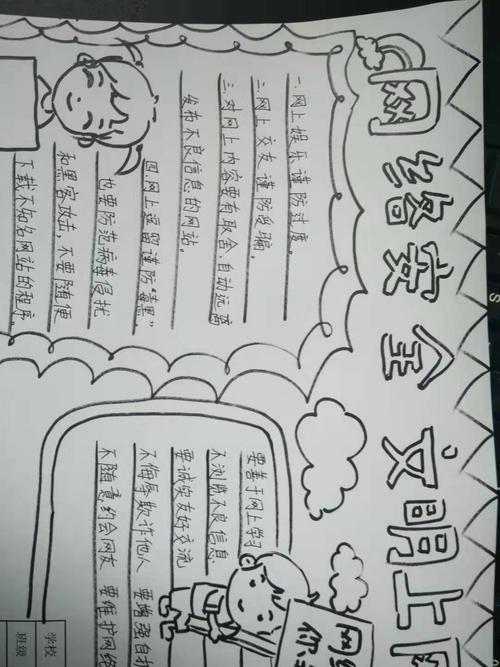 网络安全 文明上
一.网上娱乐 谨防过度。
二.网上交友 谨防受骗。
三.对网上内容要有取舍,自动远离
发布不良信息的网站。
四.网上逗留谨防“毒黑”
也要防范病毒侵扰
和黑客攻击,不要随便
下载不知名网站的程序。
要善于网上学习
不浏览不良信息
要诚实友好交流
不侮辱欺诈他人 要增强自
不随意约会网友 要维护网络
网
你
学校
班级